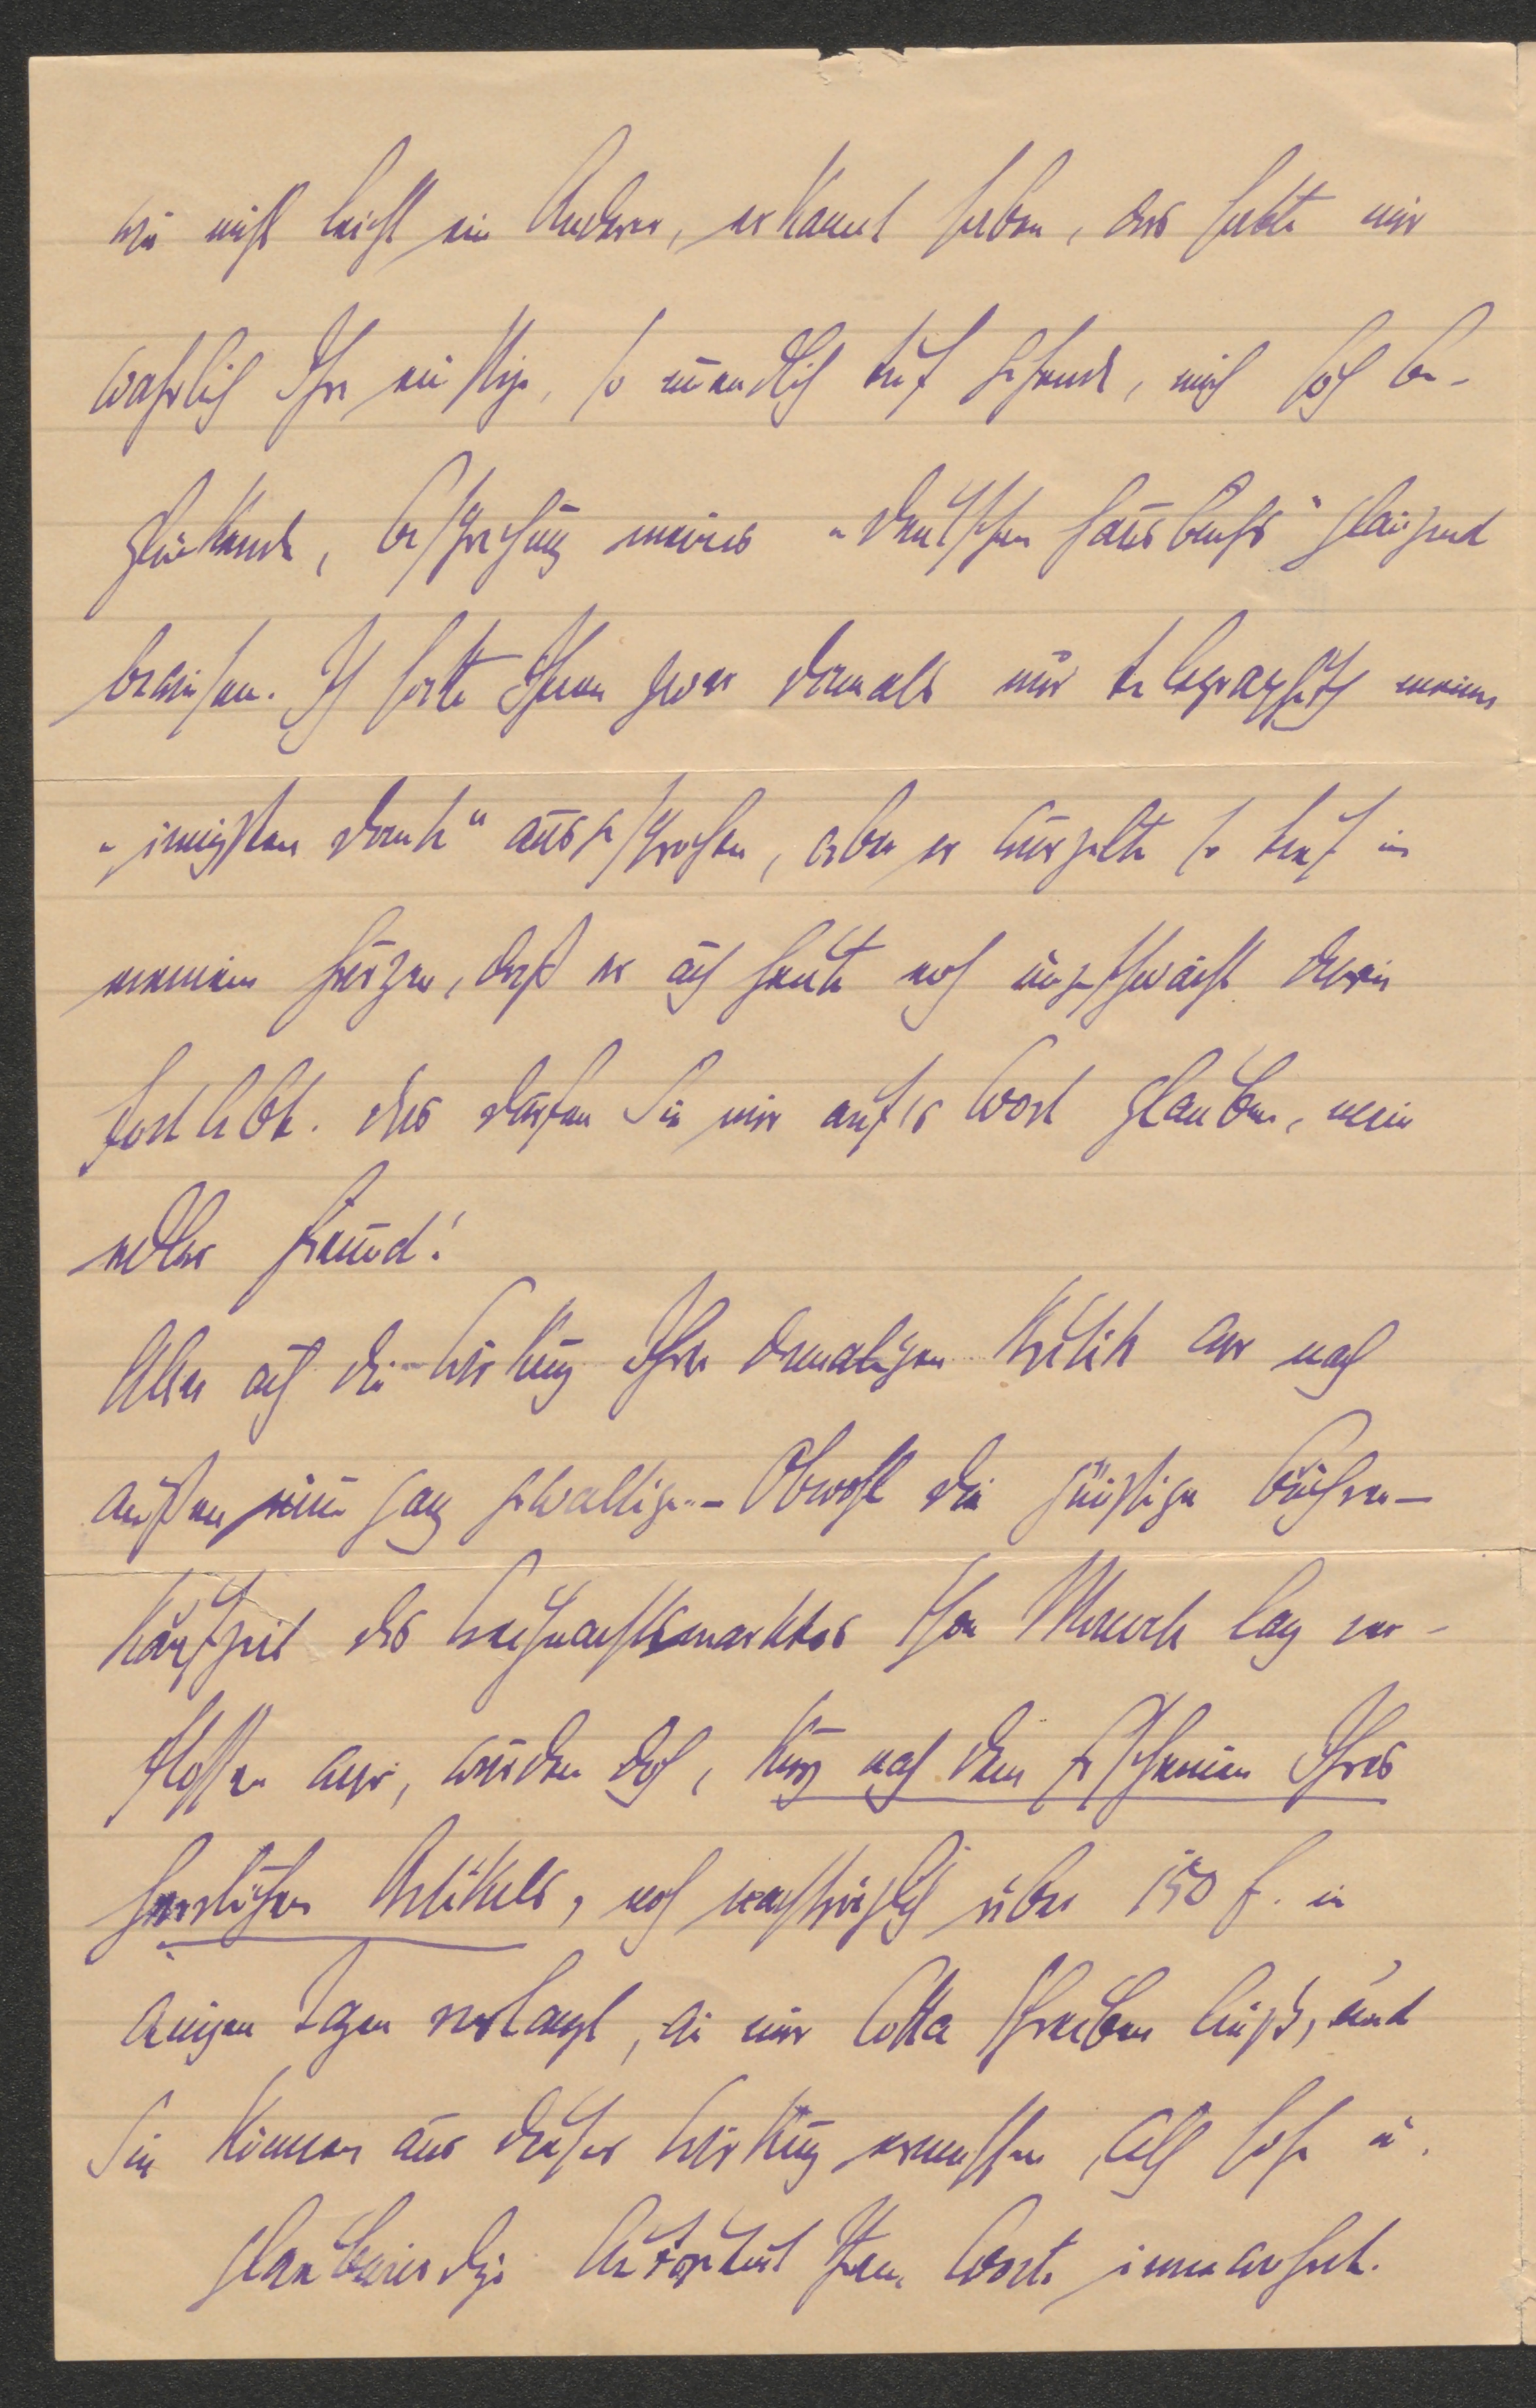 wie nicht leicht ein Anderer, erkannt haben, das hatte mir
wahrlich Ihre einstige, so unendlich tief gehende, mich hoch be-
glückende, Besprechung meines „Deutschen Hausbuchs" glänzend
bewiesen. Ich hatte Ihnen zwar damals nur telegraphisch meinen
„innigsten Dank" ausgesprochen, aber er wurzelte so tief in
meinem Herzen, daß er auch heute noch ungeschwächt darin
fortlebt. Das dürfen Sie mir auf's Wort glauben, mein
edler Freund!
Aber auch die Wirkung Ihrer damaligen Kritik war nach
außen eine ganz gewaltige. – Obwohl die günstige Bücher-
kaufzeit des Weihnachtsmarktes schon Monate lang ver-
flossen war, wurden doch, kurz nach dem Erscheinen Ihres
herrlichen Artikels, noch nachträglich über 150 f. in
wenigen Tagen verlangt, wie mir Cotta schreiben ließ, und
Sie können aus dieser Wirkung ermessen, welch hohe u.
glaubwürdige Autorität Ihrem Worte innewohnt.